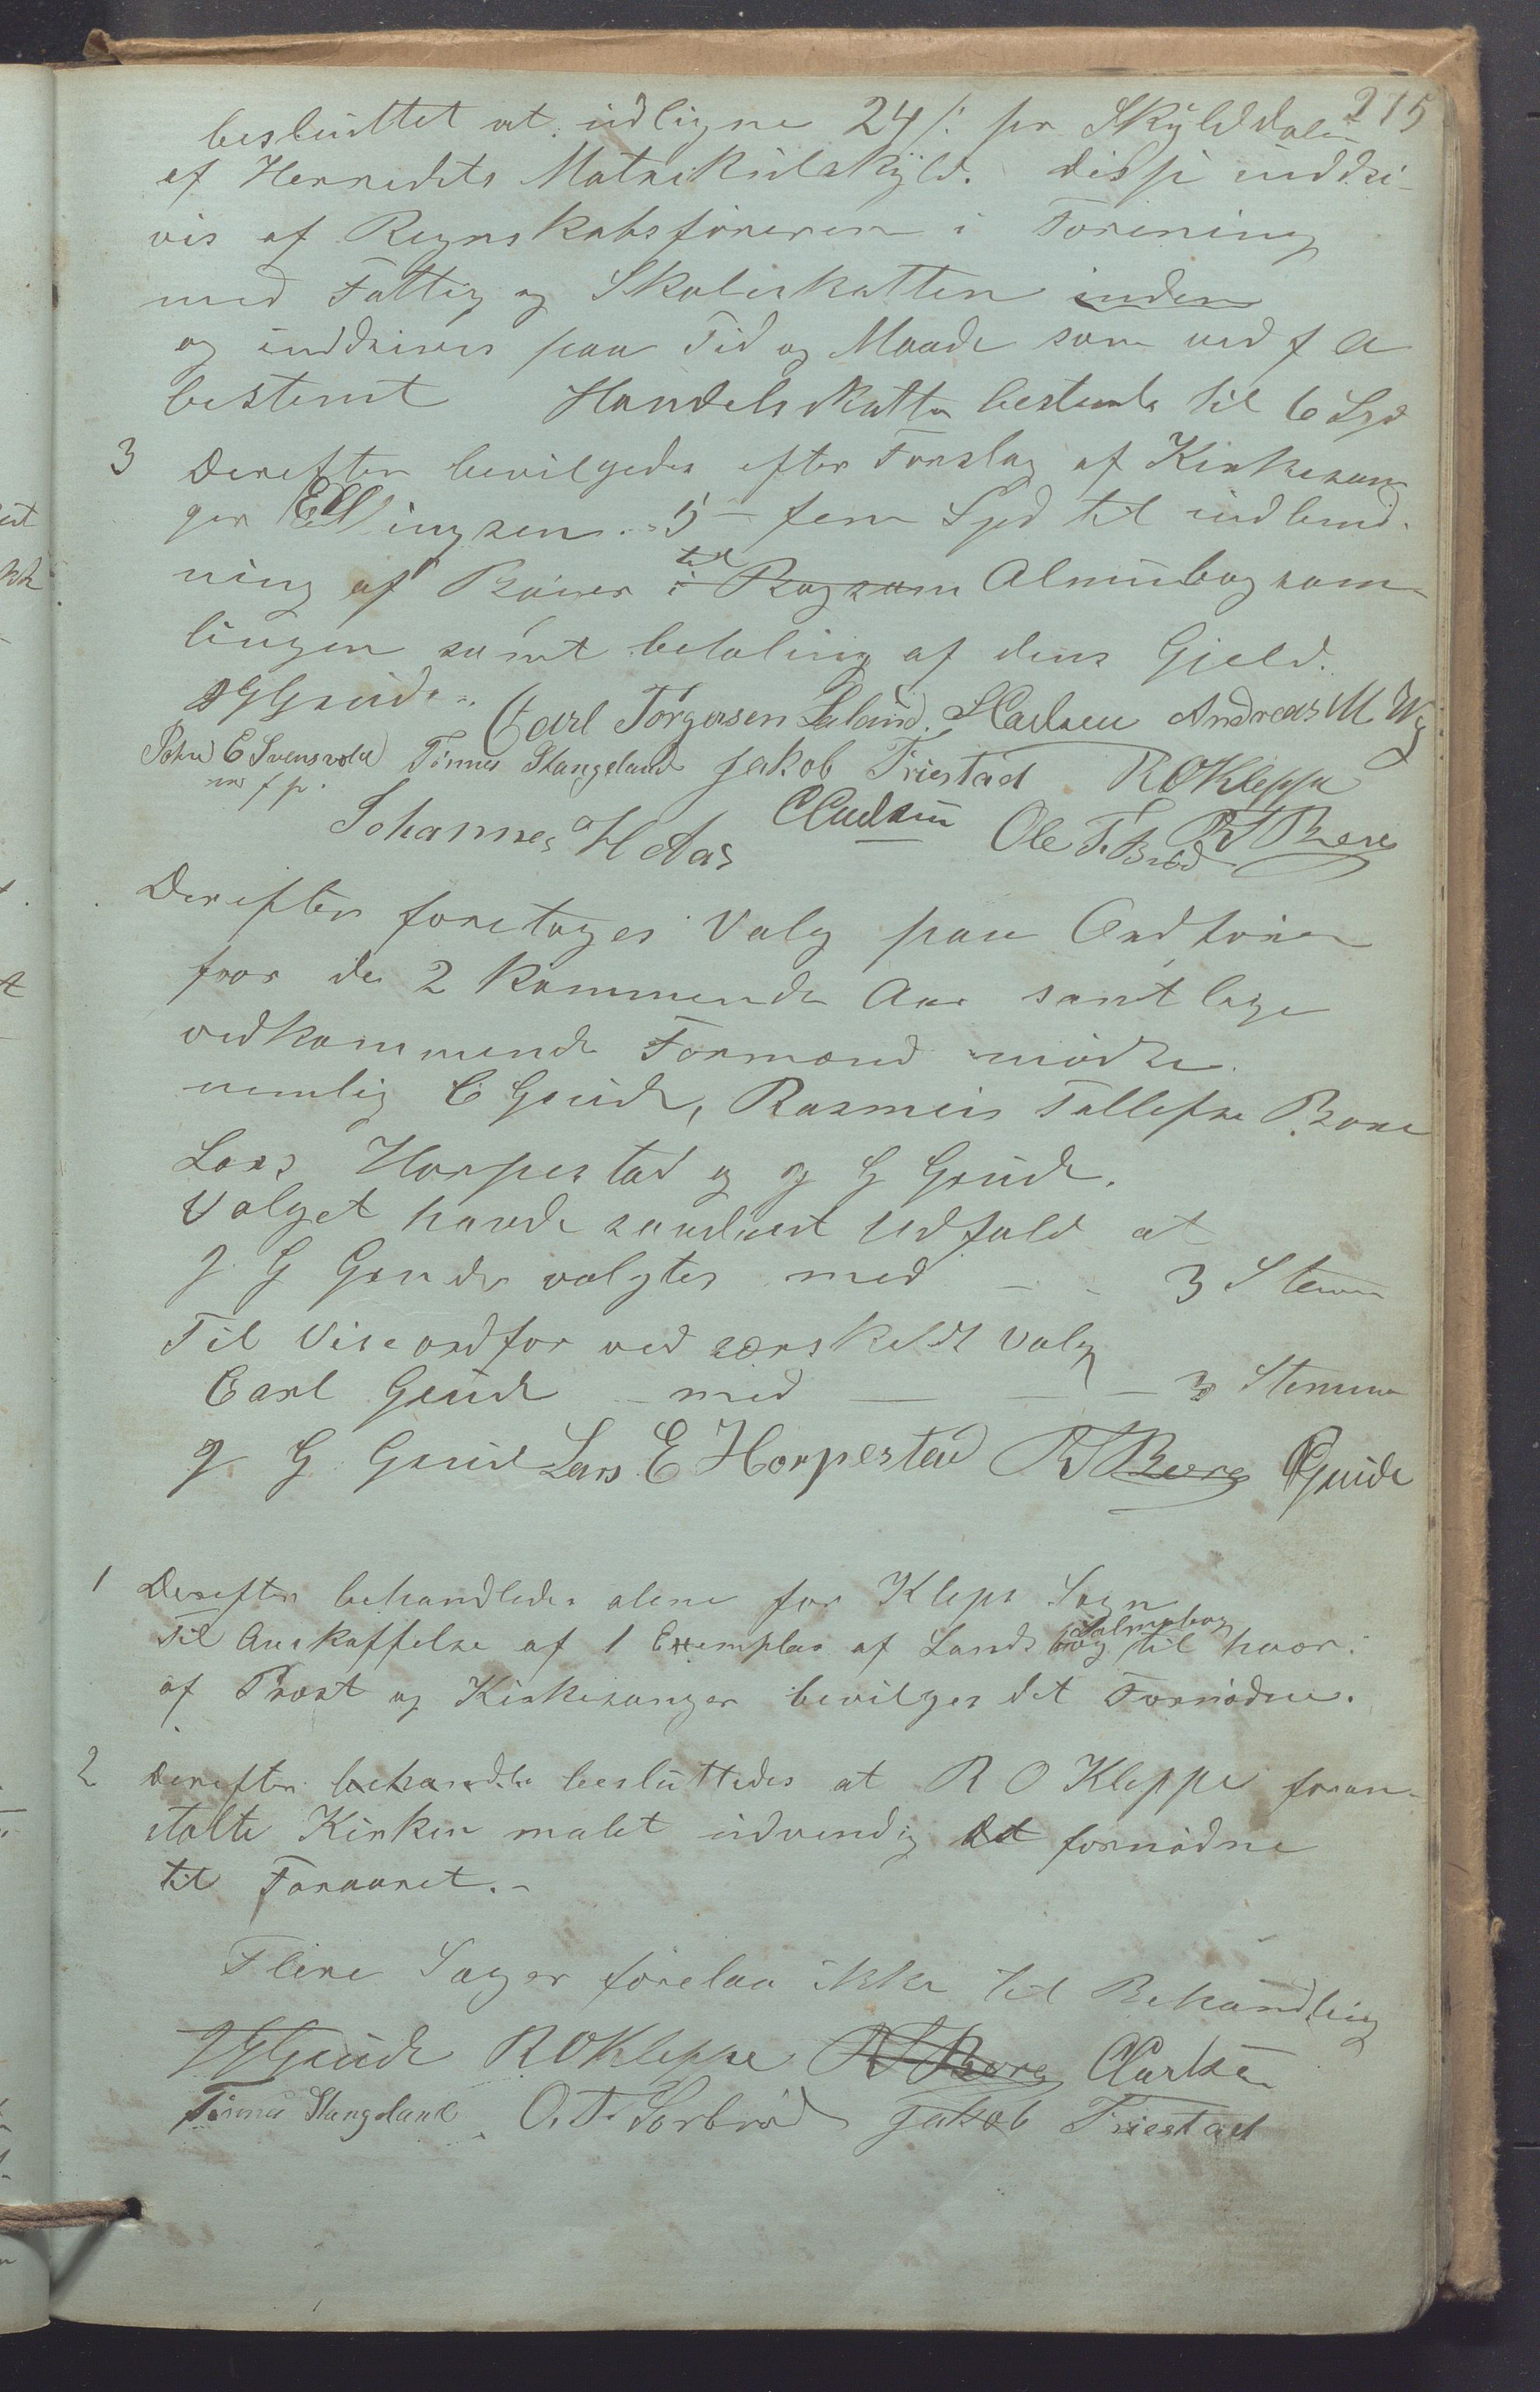 215
besluttet at udligne 24 /: pr Skylddaler
af Herredets Matrikulskyld. disse inddri-
ves af Regnskabsføreren i Forening
med Fattig og Skoleskatten inden
og inddrives paa Tid og Maade som ved f A
bestemt Handelsskatten bestemtes til 6 Spd
3 Derefter bevilgedes efter Forslag af Kirkesan
ger Ellingsen 5 – fem Spd til indbind-
ning af Bøger i til Bogsam Almubogsam-
lingen samt betaling af dens Gjeld.
JGGrude. Carl Torgersen Laland. Andreas M. Wig
E Svensvold Tønnes Stangeland Jakob Friestad R O Kleppe
m f p.
Johannes H Aas CCarlsen Ole T. Brød RTBore
Derefter foretoges Valg paa Ordfører
for de 2 kommende Aar samtlige
vedkommende Formænd mødte
nemlig C Grude, Rasmus Tollefsen Bore
Lars Horpestad og J G Grude.
Valget havde saadant Udfald at
J G Grude valgtes med - - 3 Stemmer
Til Viseordfør ved særskeldt Valg
Carl Grude – med — — – 3 Stemmer
J G Grude Lars E Horpestad RTBore CGrude
1 Derefter behandledes alene for Klepp Sogn
Til Anskaffelse af 1 Exemplar af Lands bog Salmebog til hver
af Præst og Kirkesanger bevilges det Fornødne.
2 Derefter behandle besluttedes at R O Kleppe foran-
stalte Kirken malet udvendig det fornødne
til Foraaret. -
Flere Sager forelaa ikke til Behandling
JGGrude ROKleppe RTBore CCarlsen
Tønnes Stangeland O. T. Sorbrød Jakob Friestad